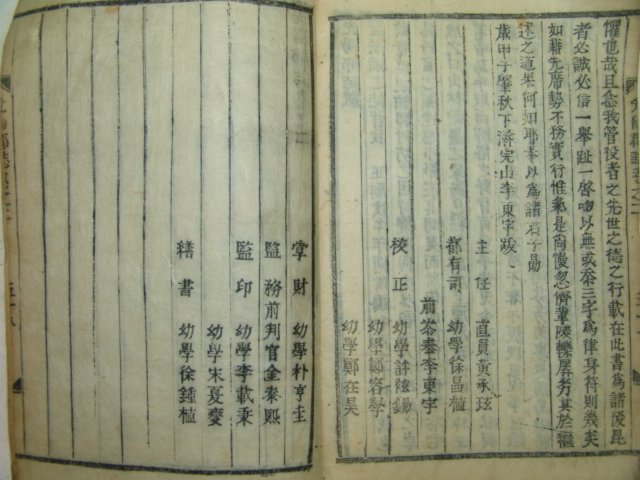 懼也哉且念我管役者之先世之德之行載在此書爲諸後昆
者必誠必信一擧趾一啓吻以無或忝三字爲律身符則幾矣
如藉先席勢不務實行惟氣是尙慢忽儕輩陵轢孱劣其於繼
述之道果何如耶奉以爲諸君子勖
歲甲子肇秋下澣完山李東宇跋
主任 直員黃承玹
都有司 幼學徐昌植
前參奉李東宇
校正 幼學許鉉錫
幼學鄭容學
幼學鄭在昊
掌財 幼學朴亨圭
監務前判官金泰熙
監印 幼學李載秉
幼學宋夏燮
繕書 幼學徐鍾植